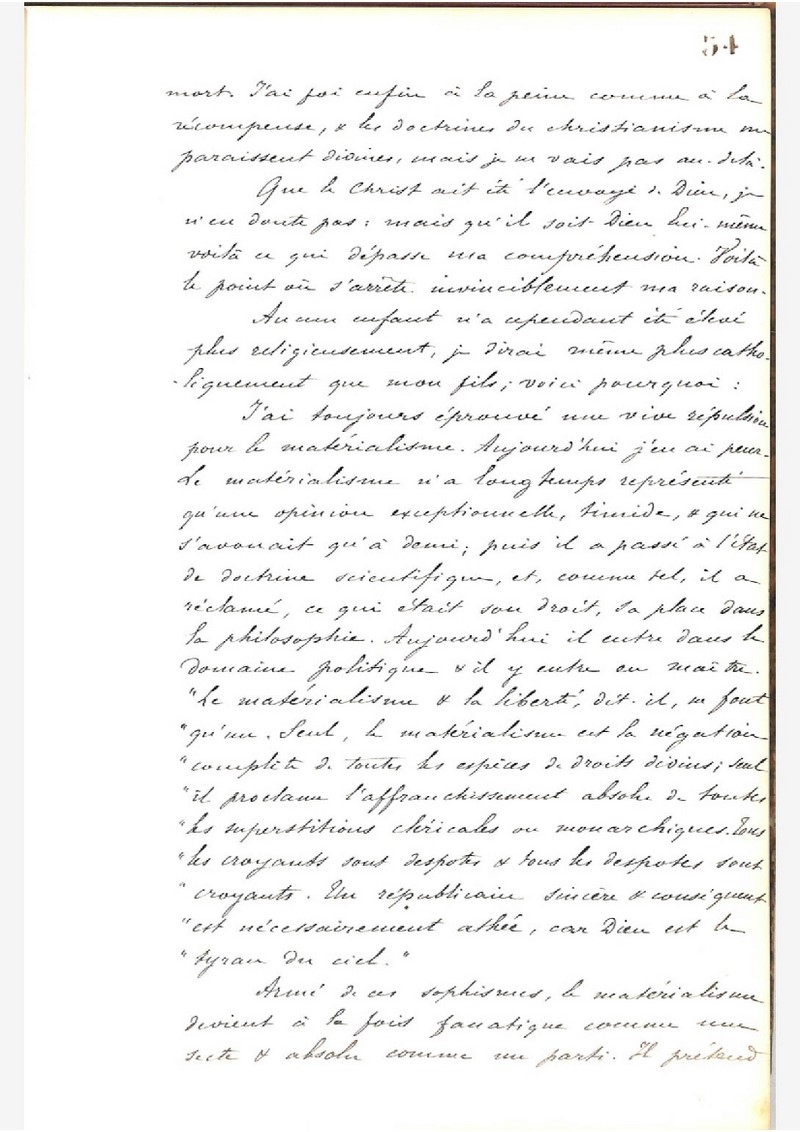 54
mort. J'ai foi enfin à la peine comme à la
récompense, & les doctrines du christianisme me
paraissent divines, mais je ne vais pas au-delà.
Que le Christ ait été l'envoyé de Dieu, je
n'en doute pas : mais qu'il soit Dieu lui-même
voilà ce qui dépasse ma compréhension. Voilà
le point où s'arrête invinciblement ma raison.
Aucun enfant n'a cependant été élevé
plus religieusement, je dirai même plus catho-
-liquement que mon fils ; voici pourquoi :
J'ai toujours éprouvé une vive répulsion
pour le matérialisme. Aujourd'hui j'en ai peur.
Le matérialisme n'a longtemps représenté
qu'une opinion exceptionnelle, timide, & qui ne
s'avouait qu'à demi ; puis il a passé à l'état
de doctrine scientifique, et, comme tel, il a
réclamé, ce qui était son droit, sa place dans
la philosophie. Aujourd'hui il entre dans le
domaine politique & il y entre en maître.
"Le matérialisme & la liberté, dit-il, ne font
"qu'un. Seul, le matérialisme est la négation
"complète de toutes les espèces de droits divins ; seul
"il proclame l'affranchissement absolu de toutes
"les superstitions cléricales ou monarchiques. Tous
"les croyants sont despotes & tous les despotes sont
"croyants. Un républicain sincère & conséquent
"est nécessairement athée, car Dieu est le
"tyran du ciel."
Armé de ces sophismes, le matérialisme
devient à la fois fanatique comme une
secte & absolu comme un parti. Il prétend